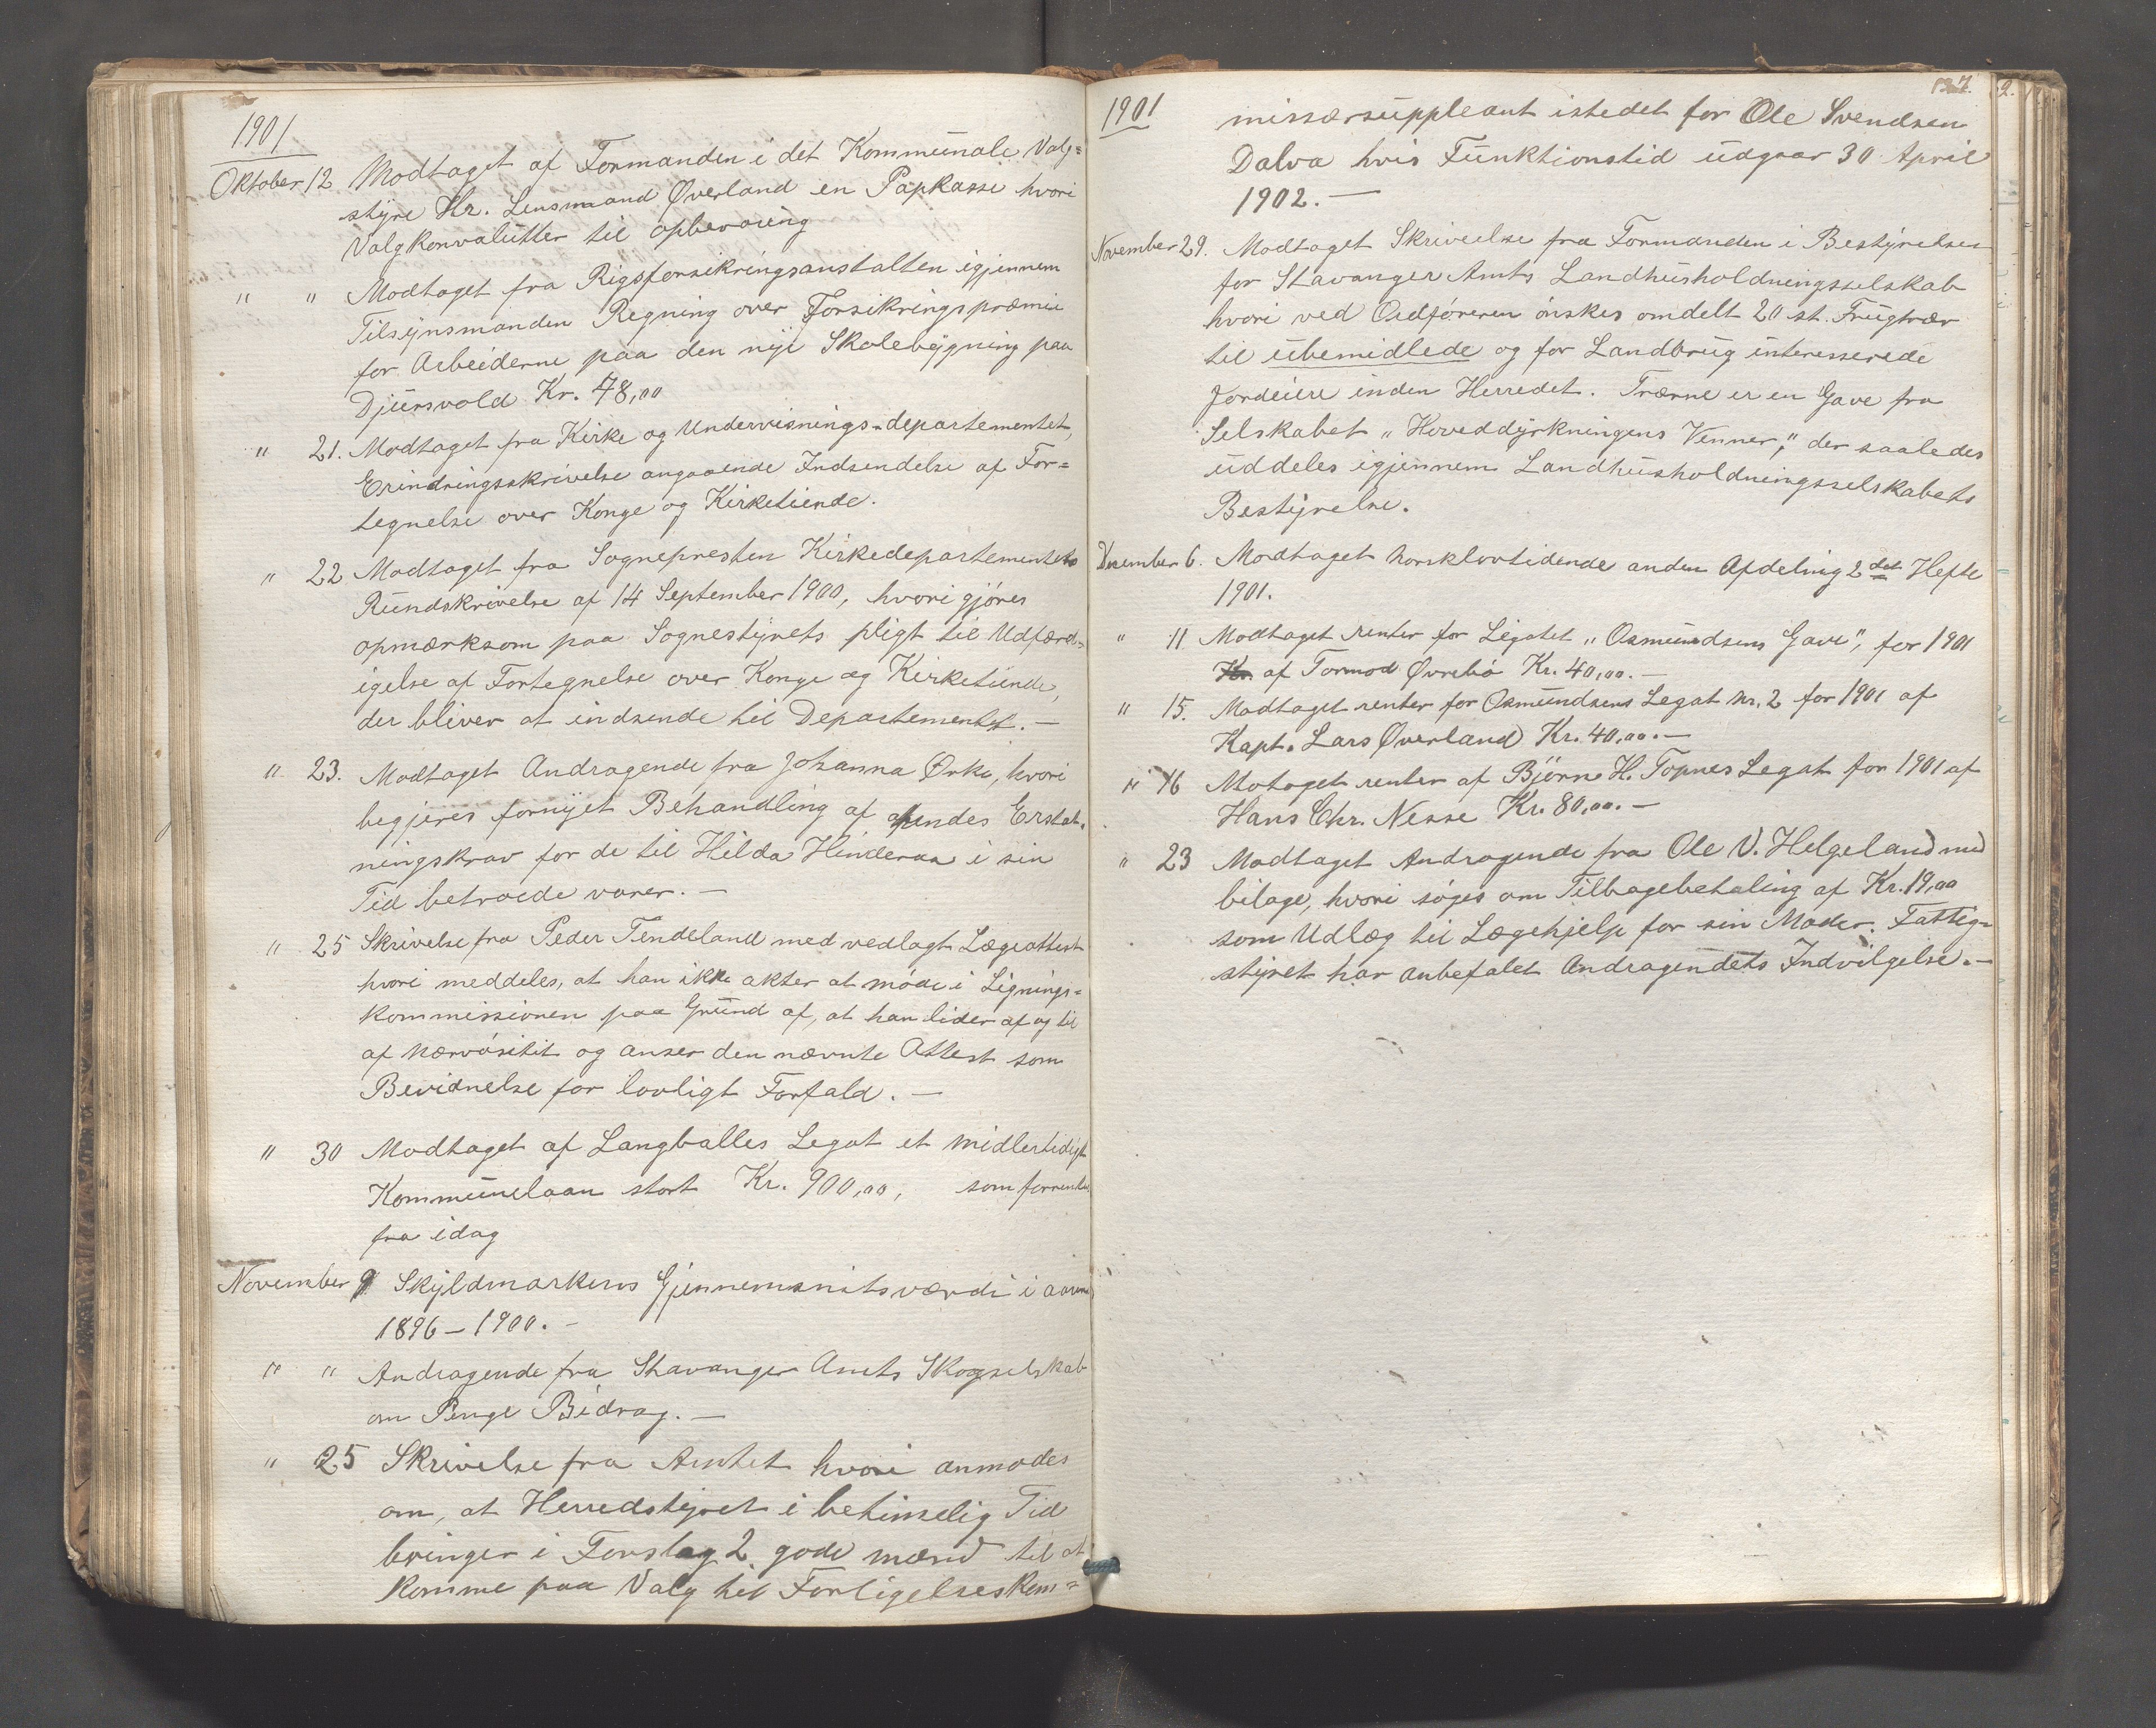 1901
Oktober 12 Modtaget af Formanden i det Kommunale Valg=
styre Hr. Lensmand Øverland en Papkasse hvori
Valgkonvalutter til opbevaring
" " Modtaget fra Rigsforsikringsanstalten igjennem
Tilsynsmanden Regning over Forsikringspræmie
for Arbeiderne paa den nye Skolebygning paa
Djursvold Kr. 78,00
" 21. Modtaget fra Kirke og Undervisnings-departementet,
Erindringsskrivelse angaaende Indsendelse af For=
tegnelse over Konge og Kirketiende.
" 22 Modtaget fra Sognepresten Kirkedepartementets
Rundskrivelse af 14 September 1900, hvori gjøres
opmærksom paa Sognestyrets pligt til Udfærd=
igelse af Fortegnelse over Konge og Kirketiende,
der bliver at indsende til Departementet. —
" 23. Modtaget Andragende fra Johanna Ørke, hvori
begjeres fornyet Behandling af hendes Erstat=
ningskrav for de til Hilda Hinderaa i sin
Tid betroede varer. —
" 25 Skrivelse fra Peder Tendeland med vedlagt Lægeattest
hvori meddeles, at han ikke akter at møde i Lignings=
kommissionen paa Grund af, at han lider af og til
af nærvøsitit og anser den nævnte Attest som
Bevidnelse for lovligt Forfald. —
" 30 Modtaget af Langballes Legat et midlertidigt
Kommunelaan stort Kr. 900,00, som forrentes
fra idag
November 9 Skyldmarkens Gjennemsnitsværdi i aarene
1896 – 1900. –
" " Andragende fra Stavanger Amts Skogselskab
om Penge Bidrag. —
" 25 Skrivelse fra Amtet hvori anmodes
om, at Herredstyret i betimelig Tid
bringer i Forslag 2 gode mænd til at
komme paa Valg til Forligelseskom=
1901
137.
2.
missærsuppleant istedet for Ole Svendsen
Dalva hvis Funktionstid udgaar 30 April
1902. —
November 29. Modtaget Skrivelse fra Formanden i Bestyrelsen
for Stavanger Amts Landhusholdningsselskab
hvori ved Ordføreren ønskes omdelt 20 st. Frugtrær
til ubemidlede og for Landbrug interesserede
Jordeiere inden Herredet. Trærne er en Gave fra
Selskabet "Hoveddyrkningens Venner", der saaledes
uddeles igjennem Landhusholdningsselskabets
Bestyrelse.
December 6. Modtaget norsklovtidende anden Afdeling 2det Hefte
1901.
" 11 Modtaget renter for Legatet "Osmundsens Gave", for 1901
Kr. af Tormod Øvrebø Kr. 40,00. —
" 15. Modtaget renter for Osmundsens Legat nr. 2 for 1901 af
Kapt. Lars Øverland Kr. 40,00. —
" 16 Motaget renter af Bjørne H. Topnes Legat for 1901 af
Hans Chr. Nesse Kr. 80,00. —
" 23 Modtaget Andragende fra Ole V. Helgeland med
bilage, hvori søges om Tilbagebetaling af Kr. 19,00
som Udlæg til Lægehjelp for sin Moder. Fattig=
styret har anbefalet Andragendets Indvilgelse. —